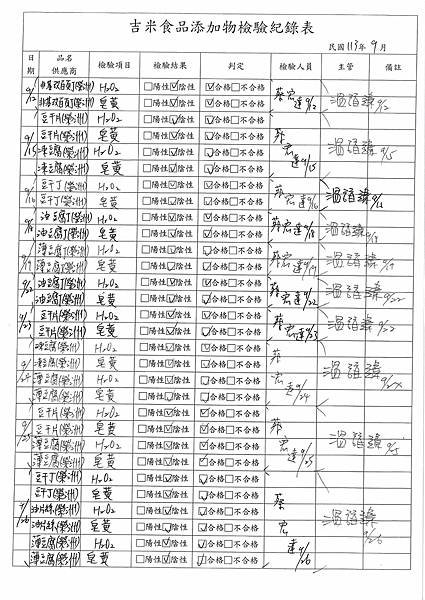 吉米食品添加物檢驗紀錄表
民國 113 年 9 月
日期 品名供應商 檢驗項目 檢驗結果 判定 檢驗人員 主管 備註
9/12 H2O2 □陽性☑陰性 ☑合格□不合格
皂黃 □陽性☑陰性 ☑合格□不合格 蔡宏達9/12 9/12
豆干片(榮洲) H2O2 □陽性☑陰性 ☑合格□不合格
9/15 豆干片(榮洲) 皂黃 □陽性☑陰性 ☑合格□不合格
凍豆腐(榮洲) H2O2 □陽性☑陰性 ☑合格□不合格 9/15
凍豆腐(榮洲) 皂黃 □陽性☑陰性 ☑合格□不合格 蔡宏達9/15
9/16 豆干丁(榮洲) H2O2 □陽性☑陰性 ☑合格□不合格
豆干丁(榮洲) 皂黃 □陽性☑陰性 ☑合格□不合格 蔡宏達9/16
9/18 油豆腐(榮洲) H2O2 □陽性☑陰性 ☑合格□不合格
油豆腐丁(榮洲) 皂黃 □陽性☑陰性 ☑合格□不合格 蔡宏達9/18
9/19 薄豆腐(榮洲) H2O2 □陽性☑陰性 ☑合格□不合格
薄豆腐(榮洲) 皂黃 □陽性☑陰性 ☑合格□不合格 蔡宏達9/19
9/22 油豆腐丁(榮洲) H2O2 □陽性☑陰性 ☑合格□不合格
油豆腐(榮洲) 皂黃 □陽性☑陰性 ☑合格□不合格 蔡宏達9/22 9/22
9/23 豆干片(榮洲) H2O2 □陽性☑陰性 ☑合格□不合格
豆干片(榮洲) 皂黃 □陽性☑陰性 ☑合格□不合格 蔡宏達9/23
凍豆腐(榮洲) H2O2 □陽性☑陰性 ☑合格□不合格
9/24 凍豆腐(榮洲) 皂黃 □陽性☑陰性 ☑合格□不合格
薄豆腐(榮洲) H2O2 □陽性☑陰性 ☑合格□不合格
薄豆腐(榮洲) 皂黃 □陽性☑陰性 ☑合格□不合格 蔡宏達9/24
豆干片(榮洲) H2O2 □陽性☑陰性 ☑合格□不合格
9/25 豆干片(榮洲) 皂黃 □陽性☑陰性 ☑合格□不合格
薄豆腐(榮洲) H2O2 □陽性☑陰性 ☑合格□不合格
薄豆腐(榮洲) 皂黃 □陽性☑陰性 ☑合格□不合格 蔡宏達9/25
豆干丁(榮洲) H2O2 □陽性☑陰性 ☑合格□不合格
豆干丁(榮洲) 皂黃 □陽性☑陰性 ☑合格□不合格
9/26 油片絲(榮洲) H2O2 □陽性☑陰性 ☑合格□不合格
油片絲(榮洲) 皂黃 □陽性☑陰性 ☑合格□不合格
薄豆腐(榮洲) H2O2 □陽性☑陰性 ☑合格□不合格 9/26
薄豆腐(榮洲) 皂黃 □陽性☑陰性 ☑合格□不合格 蔡宏達9/26